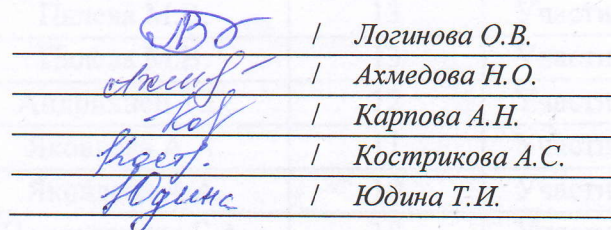 / Логинова О.В.
/ Ахмедова Н.О.
/ Карпова А.Н.
Костр. / Кострикова А.С.
Юдина / Юдина Т.И.